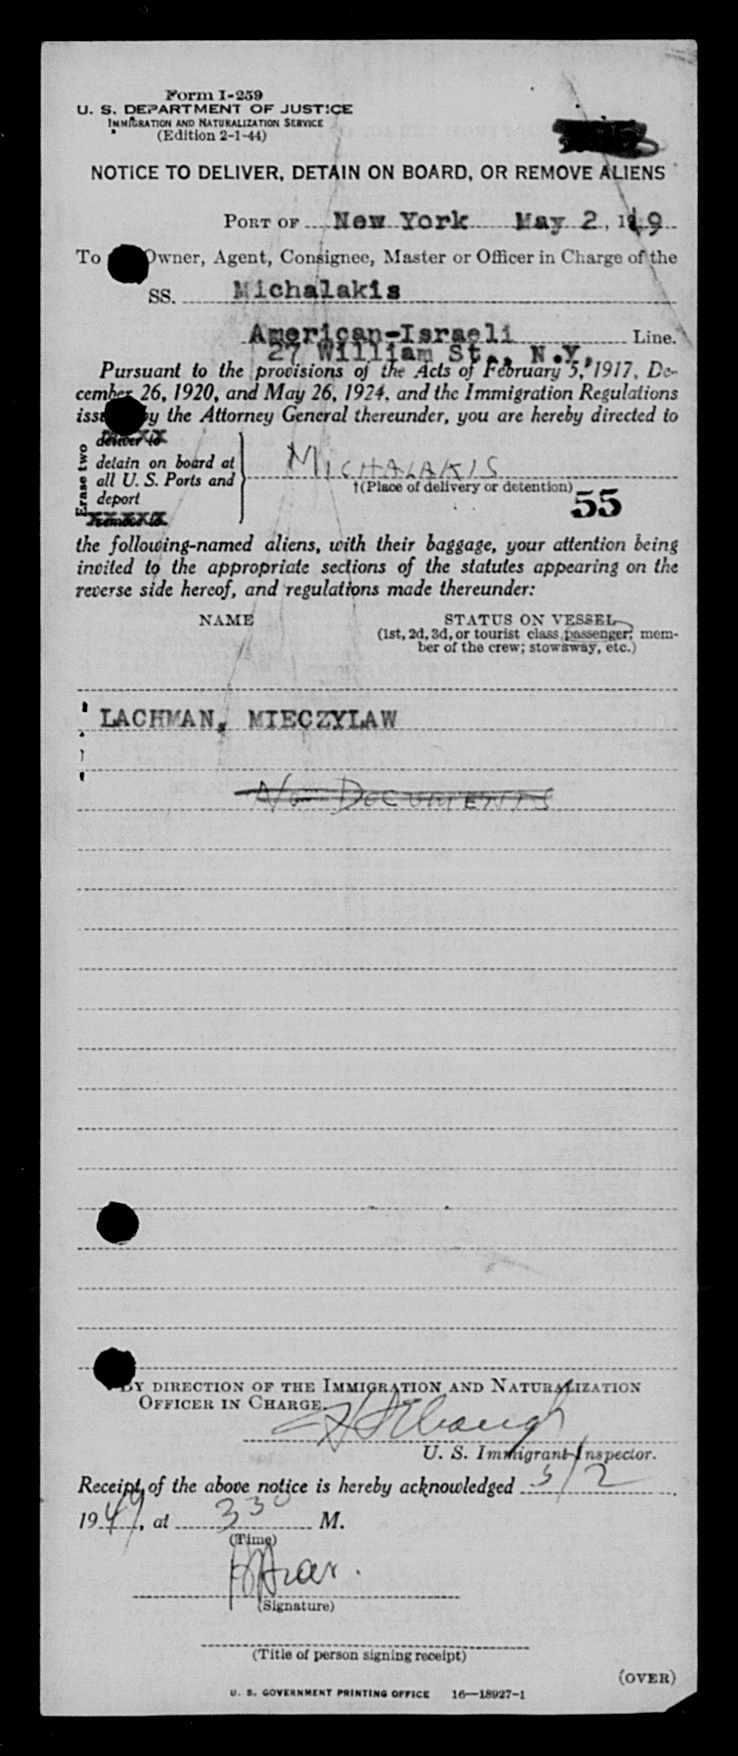 Form I-259
U. S. DEPARTMENT OF JUSTICE
IMMIGRATION AND NATURALIZATION SERVICE
(Edition 2-1-44)
NOTICE TO DELIVER, DETAIN ON BOARD, OR REMOVE ALIENS
PORT OF New York May 2, 149
To Owner, Agent, Consignee, Master or Officer in Charge of the
SS. Michalakis
American-Israeli Line.
27 William St., N.Y.
Pursuant to the provisions of the Acts of February 5, 1917, De-
cember 26, 1920, and May 26, 1924, and the Immigration Regulations
iss by the Attorney General thereunder, you are hereby directed to
Erase two
deliver to
detain on board at
all U. S. Ports and
deport
MICHALAKIS
†(Place of delivery or detention)
55
the following-named aliens, with their baggage, your attention being
invited to the appropriate sections of the statutes appearing on the
reverse side hereof, and regulations made thereunder:
NAME STATUS ON VESSEL
(1st, 2d, 3d, or tourist class passenger; mem-
ber of the crew; stowaway, etc.)
LACHMAN, MIECZYLAW
No DOCUMENTS
BY DIRECTION OF THE IMMIGRATION AND NATURALIZATION
OFFICER IN CHARGE.
U. S. Immigrant Inspector.
Receipt of the above notice is hereby acknowledged 5/2
1949, at 330 M.
(Time)
(Signature)
(Title of person signing receipt)
(OVER)
U. S. GOVERNMENT PRINTING OFFICE 16—18927-1